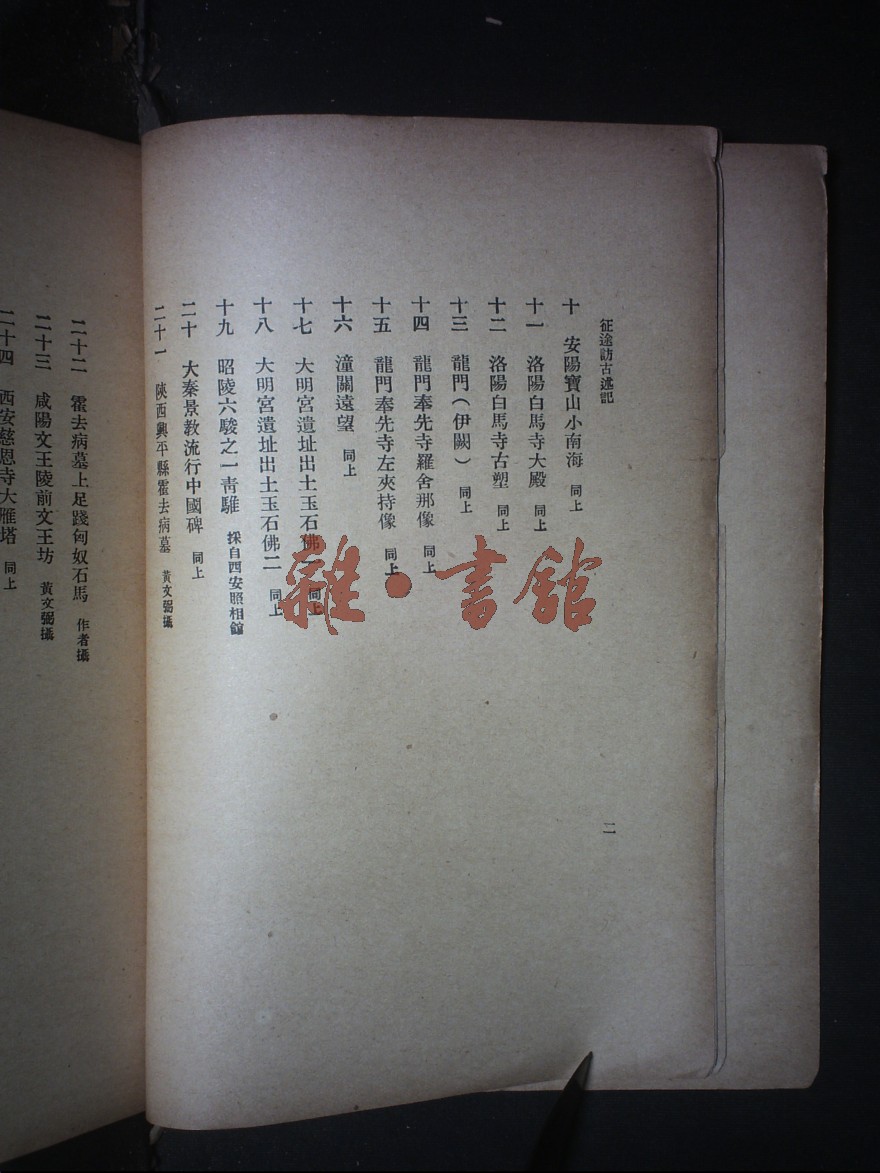 征途訪古述記
十 安陽寶山小南海 同上
十一 洛陽白馬寺大殿 同上
十二 洛陽白馬寺古塑 同上
十三 龍門（伊闕） 同上
十四 龍門奉先寺羅舍那像 同上
十五 龍門奉先寺左夾持像 同上
十六 潼關遠望 同上
十七 大明宮遺址出土玉石佛一 同上
十八 大明宮遺址出土玉石佛二 同上
十九 昭陵六駿之一靑騅 採自西安照相館
二十 大秦景教流行中國碑 同上
二十一 陝西興平縣霍去病墓 黃文弼攝
二
二十二 霍去病墓上足踐匈奴石馬 作者攝
二十三 咸陽文王陵前文王坊 黃文弼攝
二十四 西安慈恩寺大雁塔 同上
雜·書館